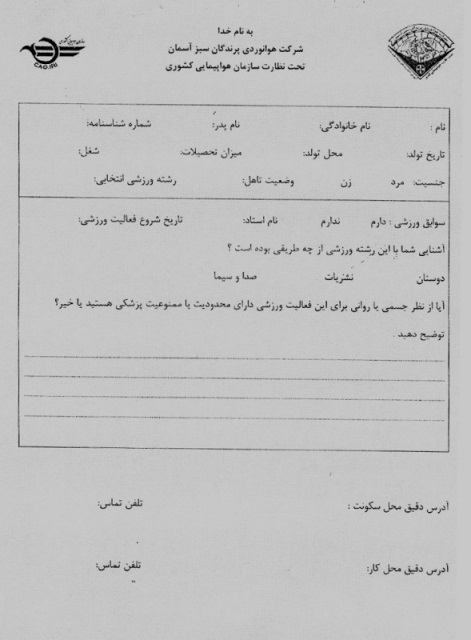 به نام خدا
شرکت هوانوردی پرندگان سبز آسمان
تحت نظارت سازمان هواپیمایی کشوری
CAO.IRI
نام : نام خانوادگی: نام پدر: شماره شناسنامه:
تاریخ تولد: محل تولد: میزان تحصیلات: شغل:
جنسیت: مرد زن وضعیت تاهل: رشته ورزشی انتخابی:
سوابق ورزشی : دارم ندارم نام استاد: تاریخ شروع فعالیت ورزشی:
آشنایی شما با این رشته ورزشی از چه طریقی بوده است ؟
دوستان نشریات صدا و سیما
آیا از نظر جسمی یا روانی برای این فعالیت ورزشی دارای محدودیت یا ممنوعیت پزشکی هستید یا خیر؟
توضیح دهید .
آدرس دقیق محل سکونت : تلفن تماس:
آدرس دقیق محل کار: تلفن تماس: